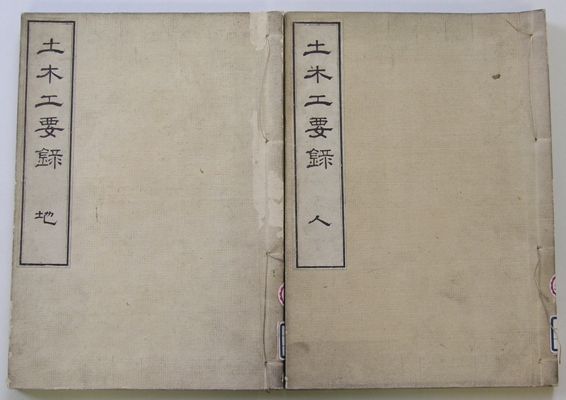 土木工要録 人
土木工要録 地